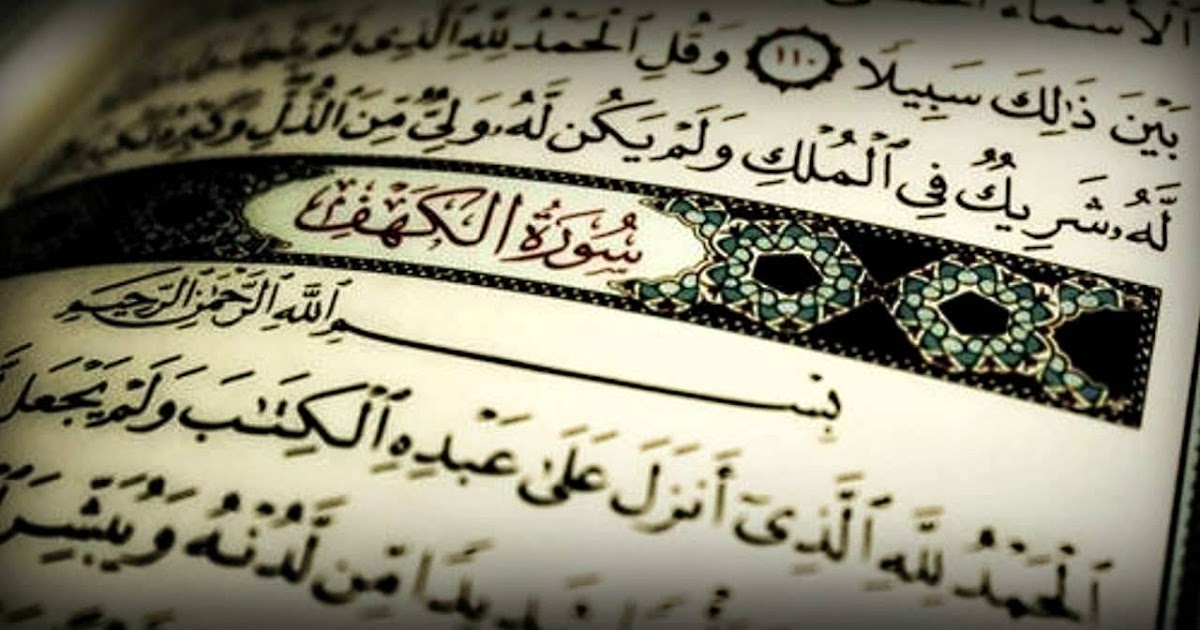 ٱلْأَسْمَآءُ
بَيْنَ ذَٰلِكَ سَبِيلًا ١١٠ وَقُلِ ٱلْحَمْدُ لِلَّهِ ٱلَّذِى لَمْ يَتَّخِذْ
لَّهُۥ شَرِيكٌ فِى ٱلْمُلْكِ وَلَمْ يَكُن لَّهُۥ وَلِىٌّ مِّنَ ٱلذُّلِّ وَكَبِّرْهُ تَكْبِيرًا
سُورَةُ الكَهْفِ
بِسْمِ ٱللَّهِ ٱلرَّحْمَٰنِ ٱلرَّحِيمِ
ٱلْحَمْدُ لِلَّهِ ٱلَّذِىٓ أَنزَلَ عَلَىٰ عَبْدِهِ ٱلْكِتَٰبَ وَلَمْ يَجْعَل
مِّن لَّدُنْهُ وَيُبَشِّرَ